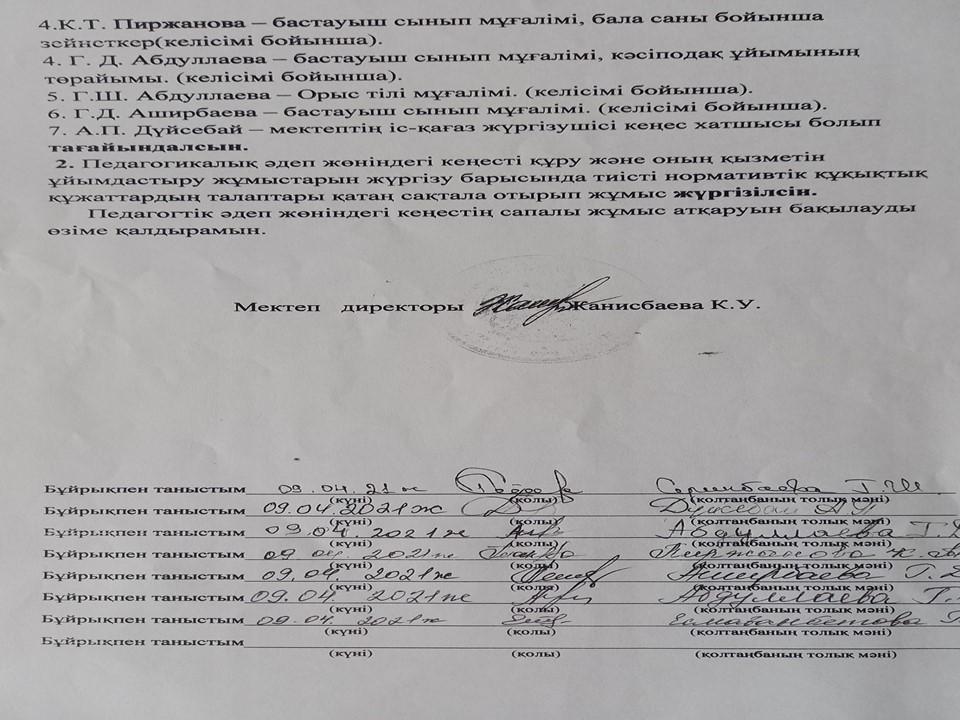 4.К.Т. Пиржанова – бастауыш сынып мұғалімі, бала саны бойынша
зейнеткер(келісімі бойынша).
4. Г. Д. Абдуллаева – бастауыш сынып мұғалімі, кәсіподақ ұйымының
төрайымы. (келісімі бойынша).
5. Г.Ш. Абдуллаева – Орыс тілі мұғалімі. (келісімі бойынша).
6. Г.Д. Аширбаева – бастауыш сынып мұғалімі. (келісімі бойынша).
7. А.П. Дүйсебай – мектептің іс-қағаз жүргізушісі кеңес хатшысы болып
тағайындалсын.
2. Педагогикалық әдеп жөніндегі кеңесті құру және оның қызметін
ұйымдастыру жұмыстарын жүргізу барысында тиісті нормативтік құқықтық
құжаттардың талаптары қатаң сақтала отырып жұмыс жүргізілсін.
Педагогтік әдеп жөніндегі кеңестің сапалы жұмыс атқаруын бақылауды
өзіме қалдырамын.
Мектеп директоры Жанисбаева К.У.
Бұйрықпен таныстым 09.04.21ж Г.Ш.
(күні) (қолы) (қолтаңбаның толық мәні)
Бұйрықпен таныстым 09.04.2021ж Дүйсебай А П
(күні) (қолы) (қолтаңбаның толық мәні)
Бұйрықпен таныстым 09.04.2021ж Абдуллаева Г.
(күні) (қолы) (қолтаңбаның толық мәні)
Бұйрықпен таныстым 09 04. 2021ж Пиржанова К.
(күні) (қолы) (қолтаңбаның толық мәні)
Бұйрықпен таныстым 09.04. 2021ж Аширбаева Г.
(күні) (қолы) (қолтаңбаның толық мәні)
Бұйрықпен таныстым 09.04. 2021ж Абдуллаева Г.
(күні) (қолы) (қолтаңбаның толық мәні)
Бұйрықпен таныстым 09.04. 2021ж
(күні) (қолы) (қолтаңбаның толық мәні)
Бұйрықпен таныстым
(күні) (қолы) (қолтаңбаның толық мәні)